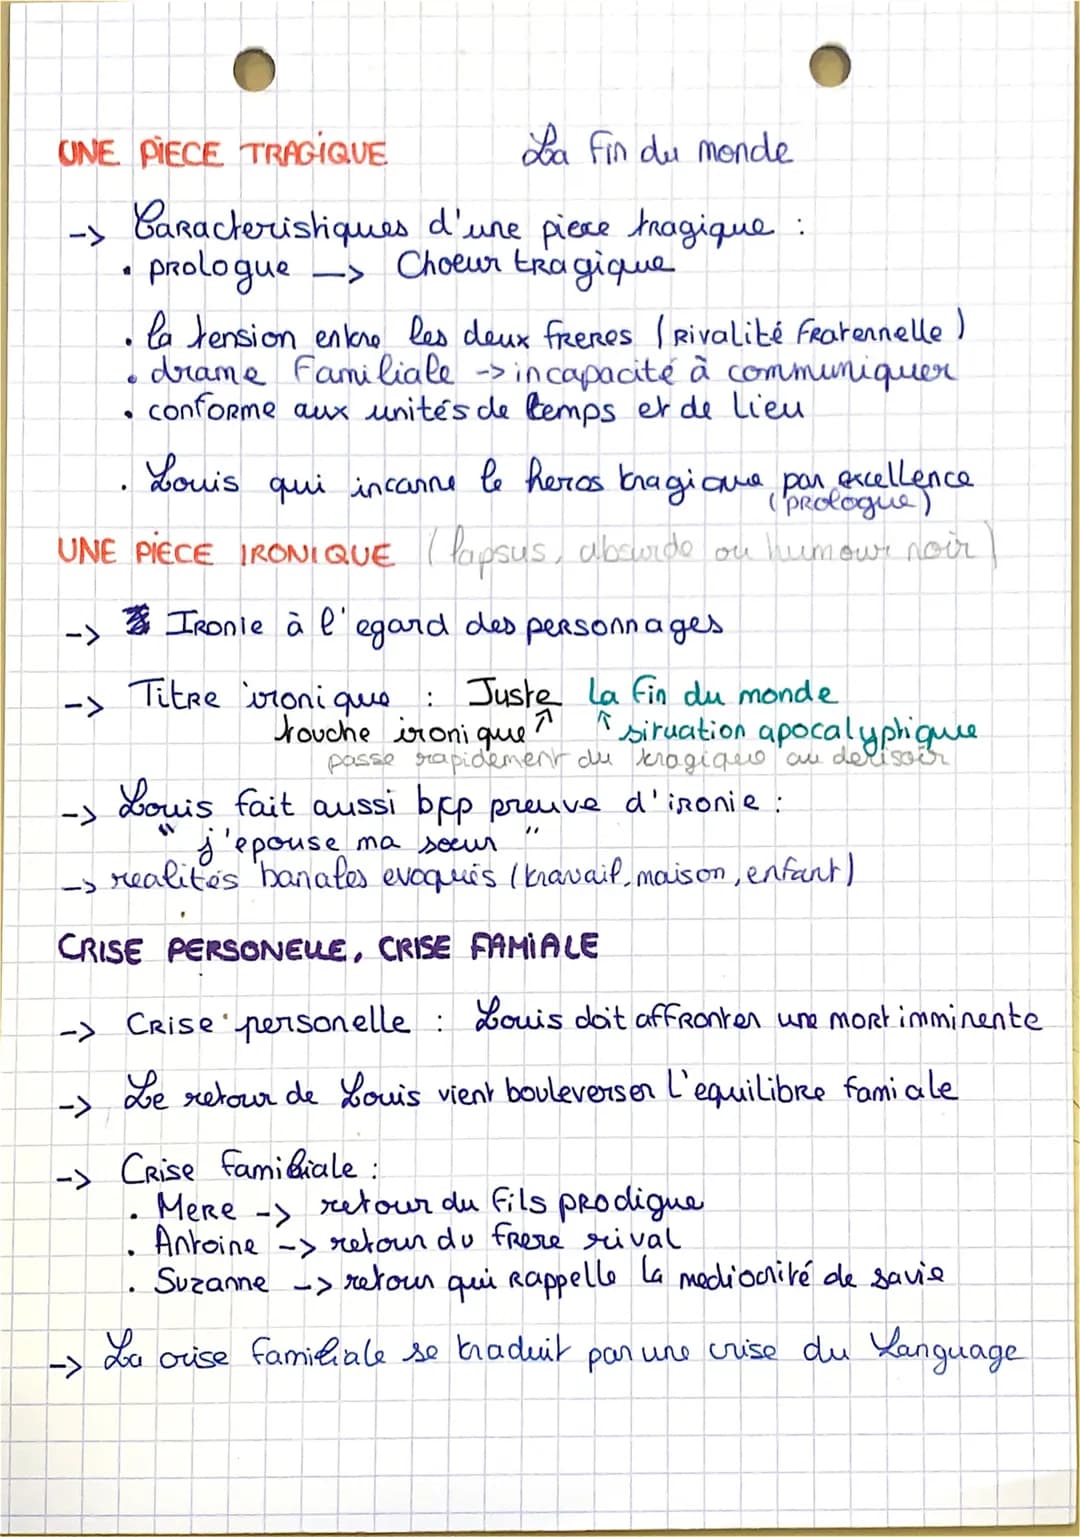 UNE PIECE TRAGIQUE La fin du monde
-> Caracteristiques d'une piece tragique :
• prologue -> Choeur tragique
• la tension entre les deux freres (Rivalité fraternnelle)
• drame familiale -> incapacité à communiquer
• conforme aux unités de temps et de lieu
• Louis qui incarne le heros tragique par excellence
(prologue)
UNE PIECE IRONIQUE (lapsus, absurde ou humour noir)
-> Ironie à l'egard des personnages
-> Titre ironique : Juste la fin du monde
touche ironique ↑ ↑ situation apocalyptique
passe rapidement du tragique au derisoir
-> Louis fait aussi bcp preuve d'ironie :
" j'epouse ma soeur "
-> realités banales evoqués (travail, maison, enfant)
CRISE PERSONELLE, CRISE FAMIALE
-> Crise personelle : Louis doit affronter une mort imminente
-> Le retour de Louis vient bouleverser l'equilibre famiale
-> Crise familiale :
• Mere -> retour du fils prodigue
• Antoine -> retour du frere rival
• Suzanne -> retour qui rappelle la mediocrité de sa vie
-> La crise familiale se traduit par une crise du Language